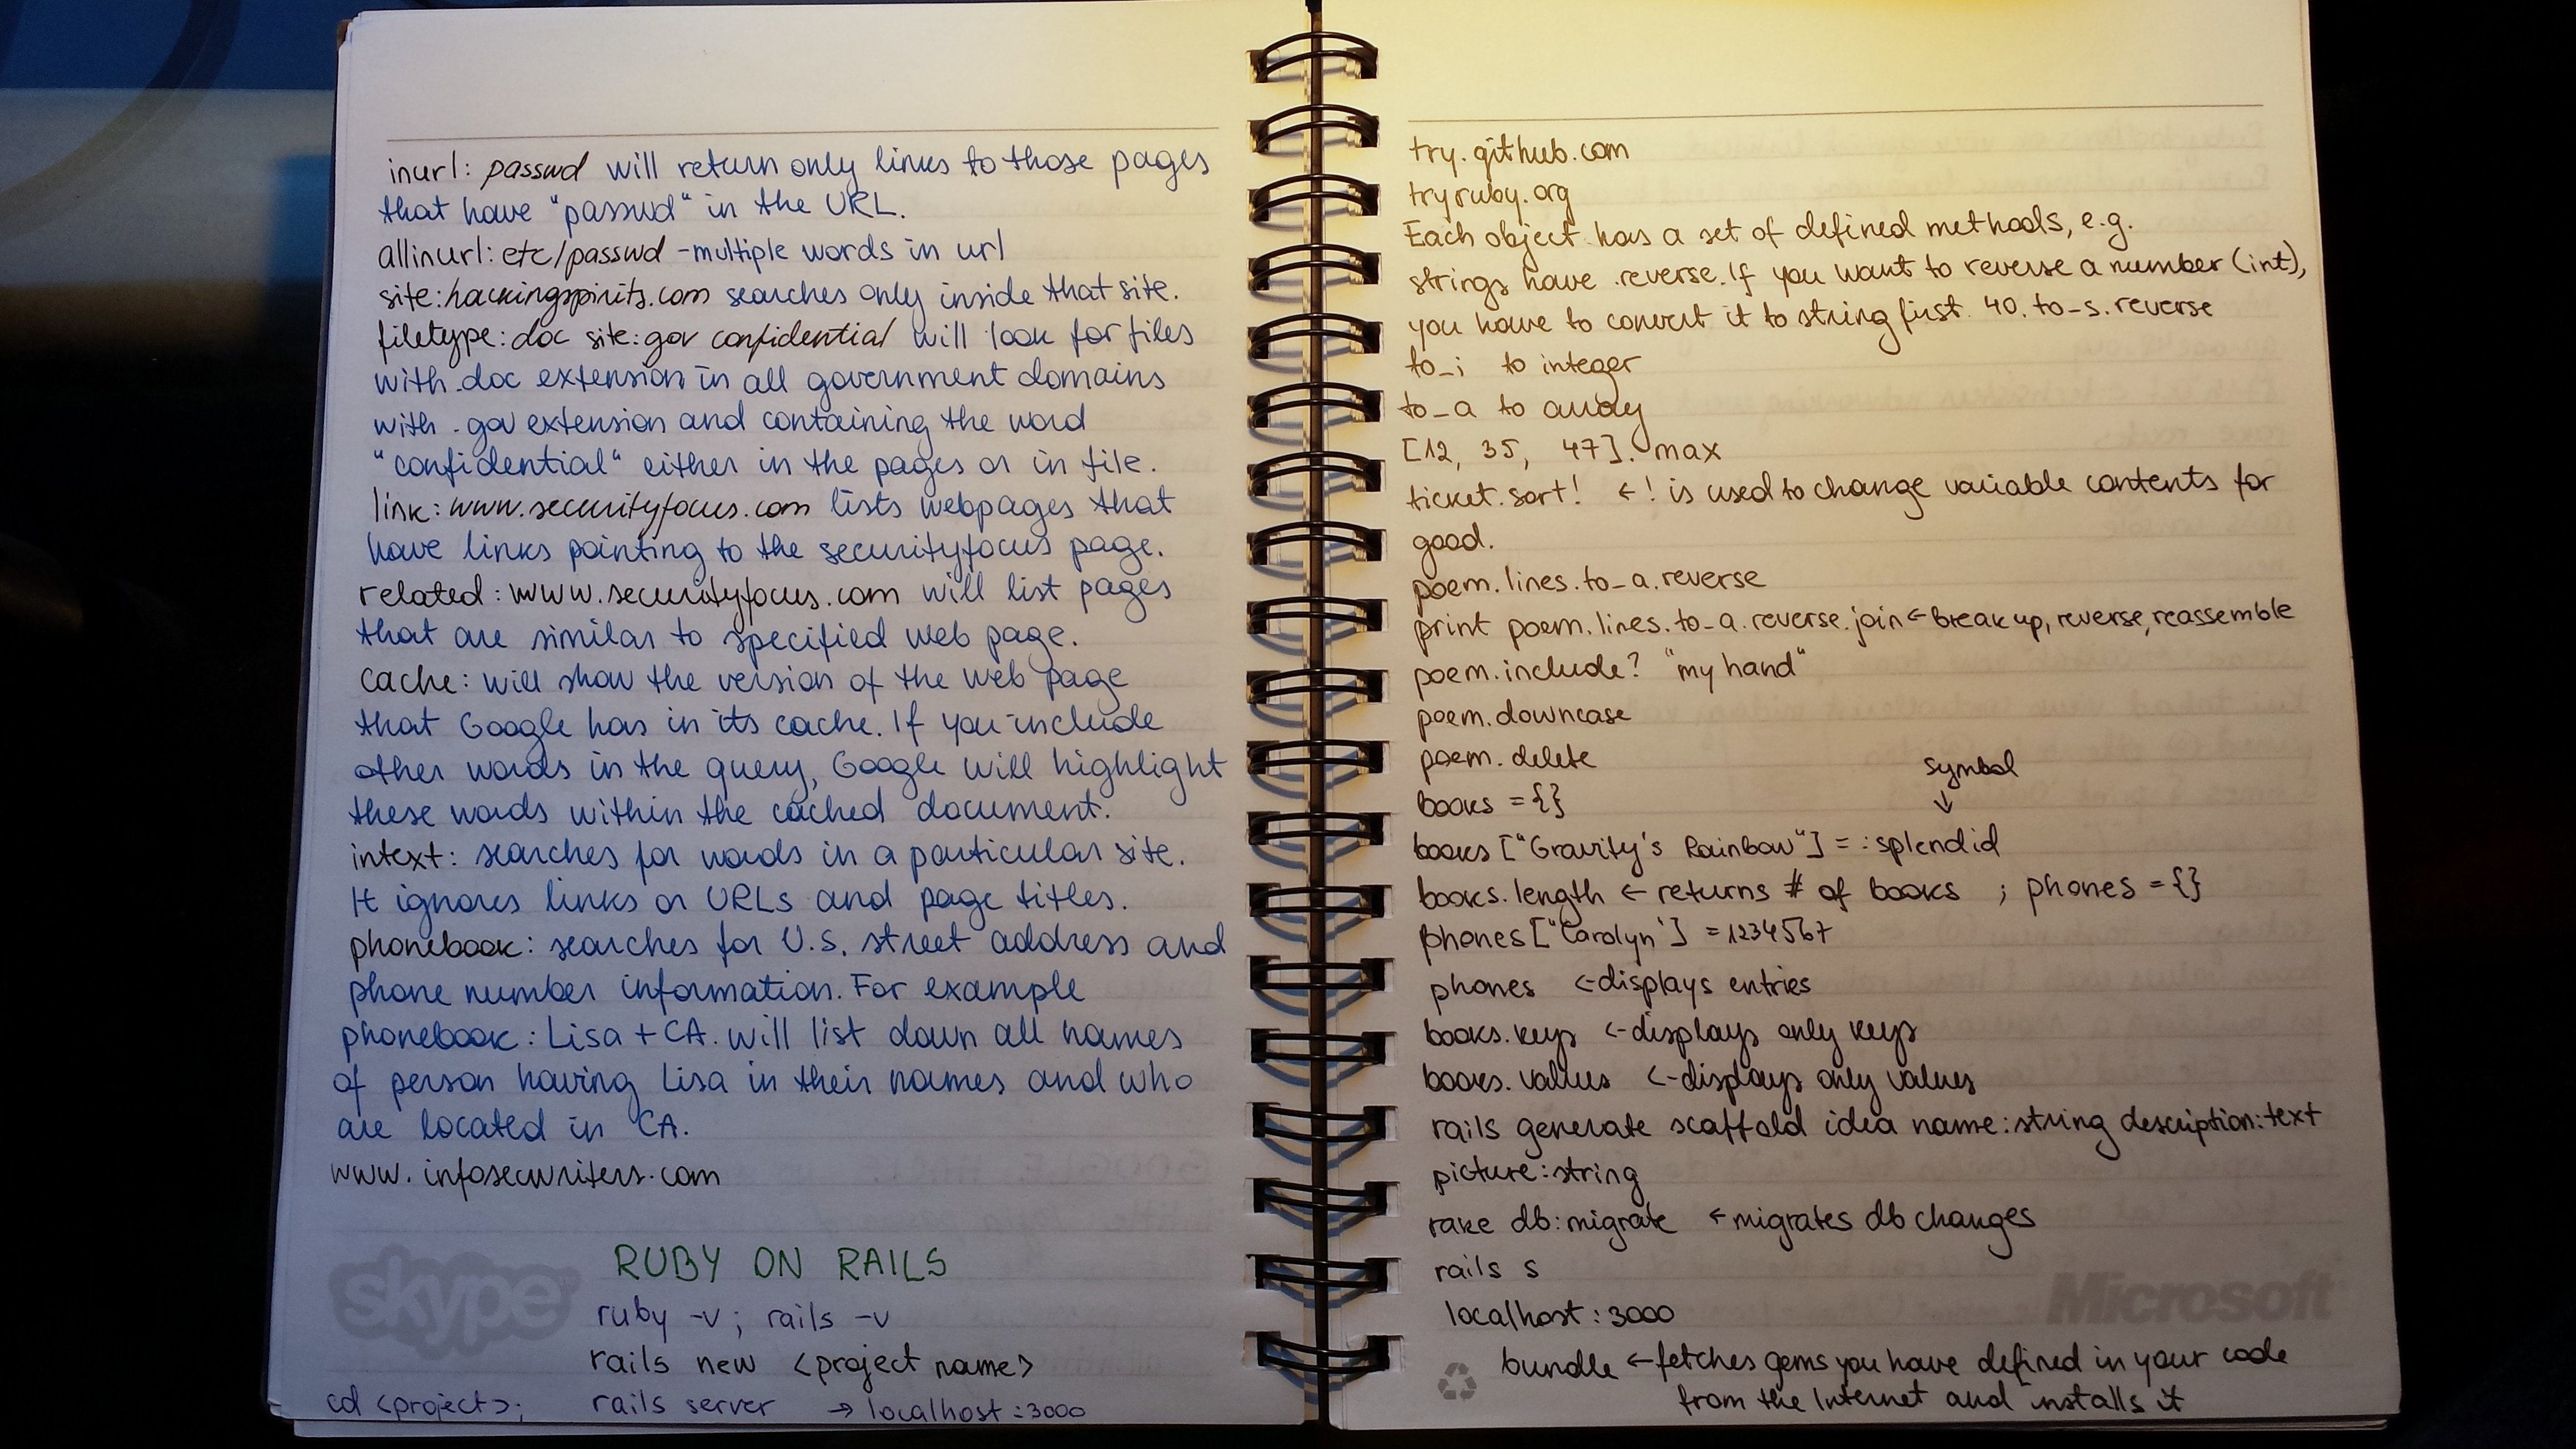 inurl: passwd will return only links to those pages
that have "passwd" in the URL.
allinurl: etc/passwd - multiple words in url
site:hackingspirits.com searches only inside that site.
filetype:doc site:gov confidential will look for files
with .doc extension in all government domains
with .gov extension and containing the word
"confidential" either in the pages or in file.
link: www.securityfocus.com lists webpages that
have links pointing to the securityfocus page.
related: www.securityfocus.com will list pages
that are similar to specified web page.
cache: will show the version of the web page
that Google has in its cache. If you include
other words in the query, Google will highlight
these words within the cached document.
intext: searches for words in a particular site.
It ignores links or URLs and page titles.
phonebook: searches for U.S. street address and
phone number information. For example
phonebook: Lisa + CA. will list down all names
of person having Lisa in their names and who
are located in CA.
www.infosecwriters.com
RUBY ON RAILS
skype
ruby -v; rails -v
rails new <project name>
cd <project>; rails server → localhost:3000
try.github.com
tryruby.org
Each object has a set of defined methods, e.g.
strings have .reverse. If you want to reverse a number (int),
you have to convert it to string first. 40.to_s.reverse
to_i to integer
to_a to array
[12, 35, 47].max
ticket.sort! ← ! is used to change variable contents for
good.
poem.lines.to_a.reverse
print poem.lines.to_a.reverse.join ← break up, reverse, reassemble
poem.include? "my hand"
poem.downcase
poem.delete
symbol
↓
books = {}
books ["Gravity's Rainbow"] = :splendid
books.length ← returns # of books ; phones = {}
phones ["Carolyn'] = 1234567
phones <-displays entries
books.keys <-displays only keys
books.values <-displays only values
rails generate scaffold idea name:string description:text
picture:string
rake db:migrate ← migrates db changes
rails s
localhost:3000
Microsoft
bundle ← fetches gems you have defined in your code
from the Internet and installs it